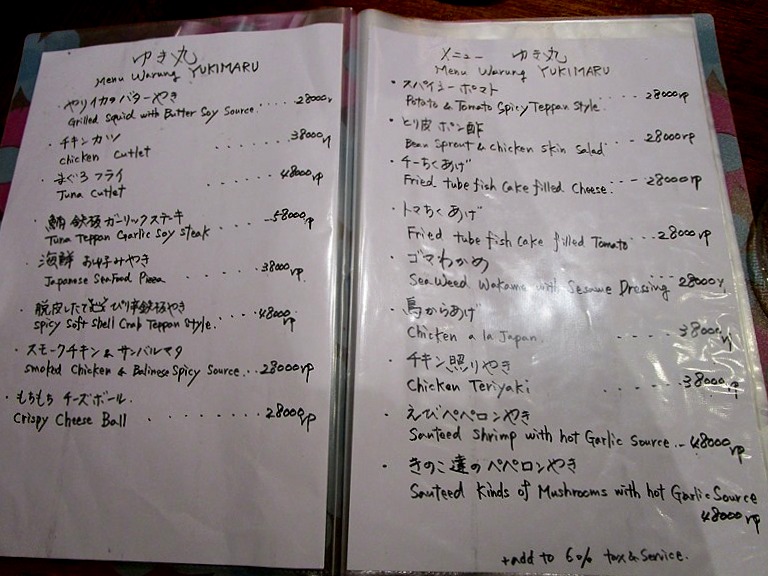 ゆき丸
Menu Warung YUKIMARU
・ヤリイカのバターやき
Grilled Squid with Butter Soy Source ..... 28000rp
・チキンカツ
Chicken Cutlet ....... 38000rp
・まぐろフライ
Tuna Cutlet ....... 48000rp
・鮪鉄板ガーリックステーキ
Tuna Teppan Garlic Soy Steak ..... 58000rp
・海鮮お好みやき
Japanese Seafood Pizza ...... 38000rp
・脱皮したて ピリ辛鉄板やき
Spicy Soft Shell Crab Teppan Style. .... 48000rp
・スモークチキン & サンバルマタ
Smoked Chicken & Balinese Spicy Source .. 28000rp
・もちもち チーズボール.
Crispy Cheese Ball ....... 28000rp
メニュー ゆき丸
Menu Warung YUKIMARU
・スパイシーポマト
Potato & Tomato Spicy Teppan Style. .... 28000rp
・とり皮ポン酢
Bean Sprout & Chicken Skin Salad .... 28000rp
・チーちくあげ
Fried tube fish Cake filled Cheese. .... 28000rp
・トマちくあげ
Fried tube fish Cake filled Tomato ... 28000rp
・ゴマわかめ
Sea Weed Wakame with Sesame Dressing 28000rp
・鳥からあげ
Chicken a la Japan. .... 38000rp
・チキン照りやき
Chicken Teriyaki ..... 38000rp
・えびペペロンやき
Sauteed Shrimp with hot Garlic Source .. 48000rp
・きのこ達のペペロンやき
Sauteed Kinds of Mushrooms with hot Garlic Source
48000rp
+add to 6% tax & Service.